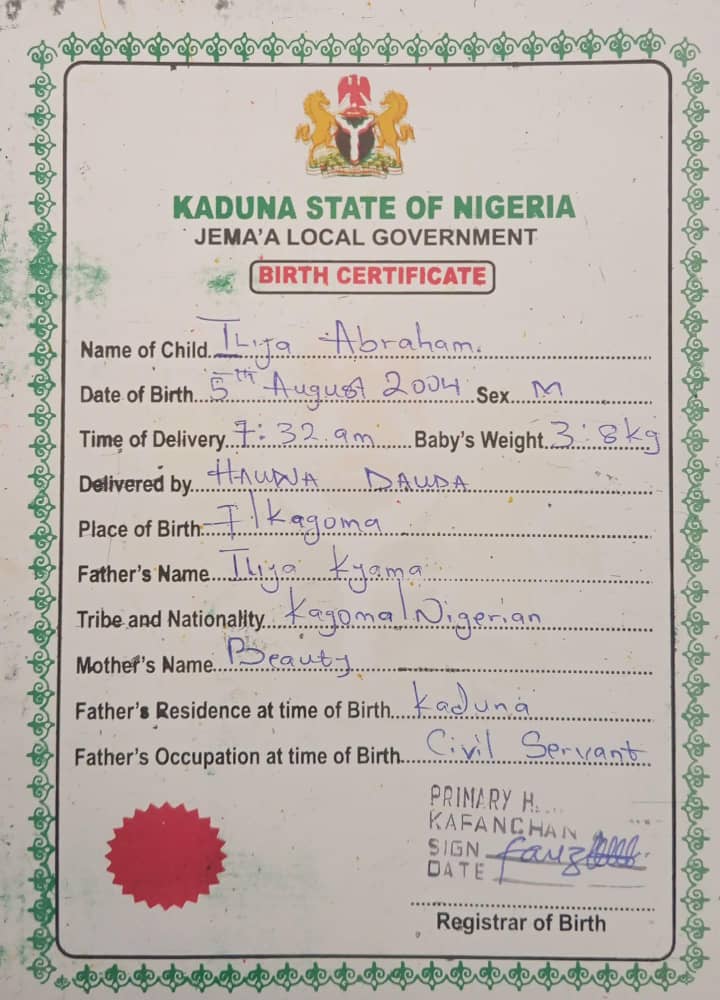 KADUNA STATE OF NIGERIA
JEMA'A LOCAL GOVERNMENT
BIRTH CERTIFICATE
Name of Child Iliya Abraham.
Date of Birth 5th August 2004 Sex M
Time of Delivery 7:32 am Baby's Weight 3:8kg
Delivered by HAUWA DAUDA
Place of Birth F/Kagoma
Father's Name Iliya Kyama
Tribe and Nationality Kagoma/Nigerian
Mother's Name Beauty
Father's Residence at time of Birth Kaduna
Father's Occupation at time of Birth Civil Servant
PRIMARY H
KAFANCHAN
SIGN
DATE
Registrar of Birth